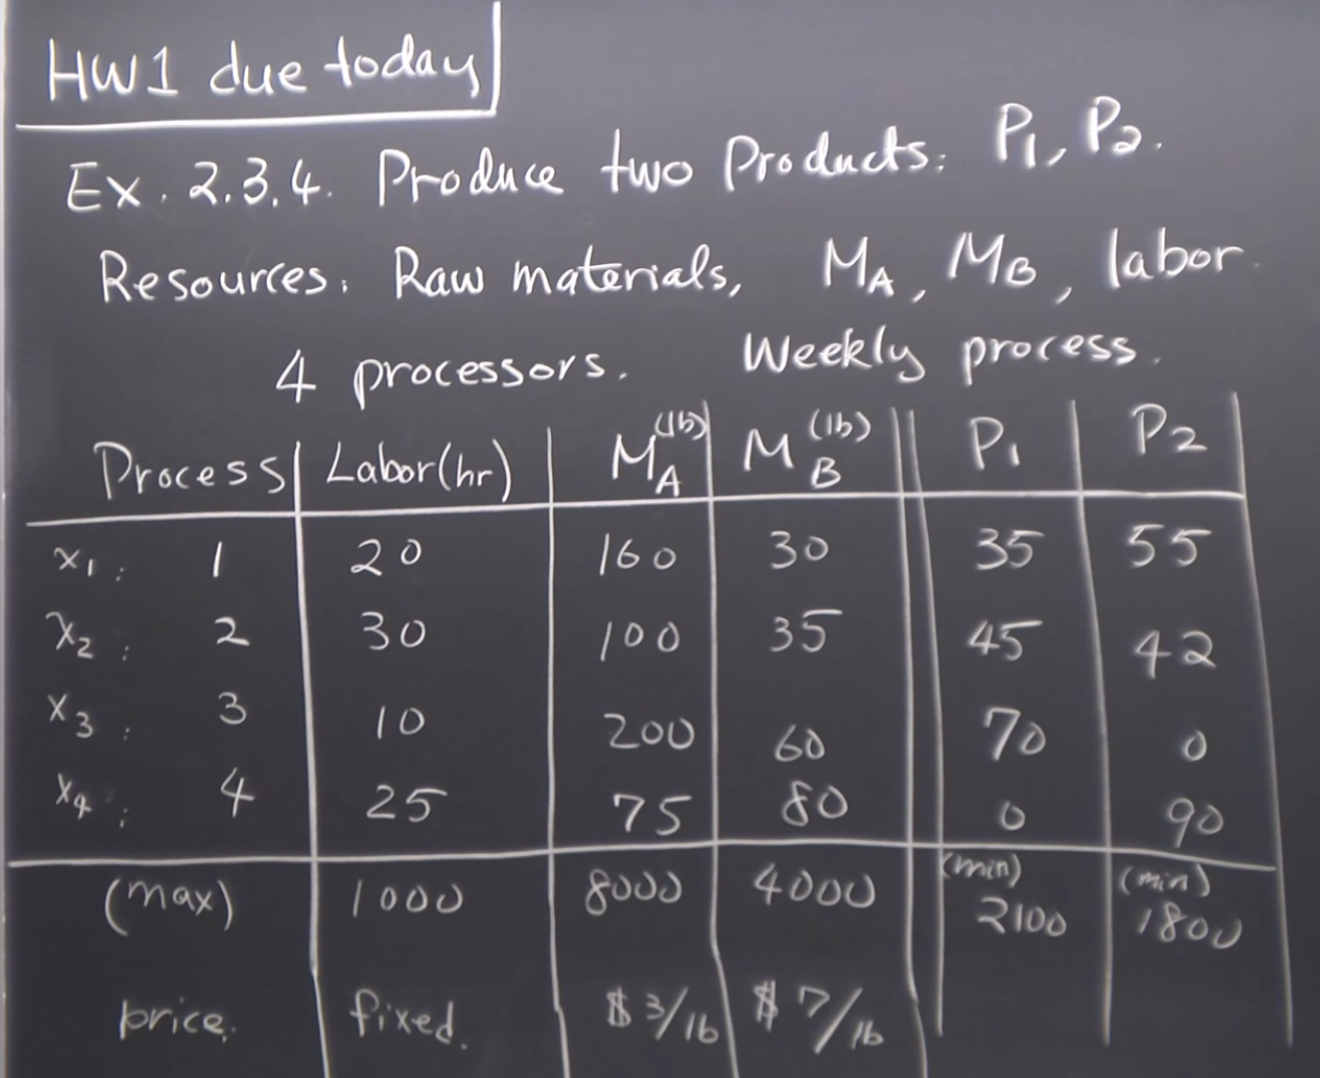 HW1 due today
Ex. 2.3.4. Produce two Products: P1, P2.
Resources: Raw materials, MA, MB, labor.
4 processors. Weekly process.
Process Labor(hr) MA(lb) MB(lb) P1 P2
x1: 1 20 160 30 35 55
x2: 2 30 100 35 45 42
x3: 3 10 200 60 70 0
x4: 4 25 75 80 0 90
(max) 1000 8000 4000 (min) 2100 (min) 1800
price. fixed. $3/lb $7/lb